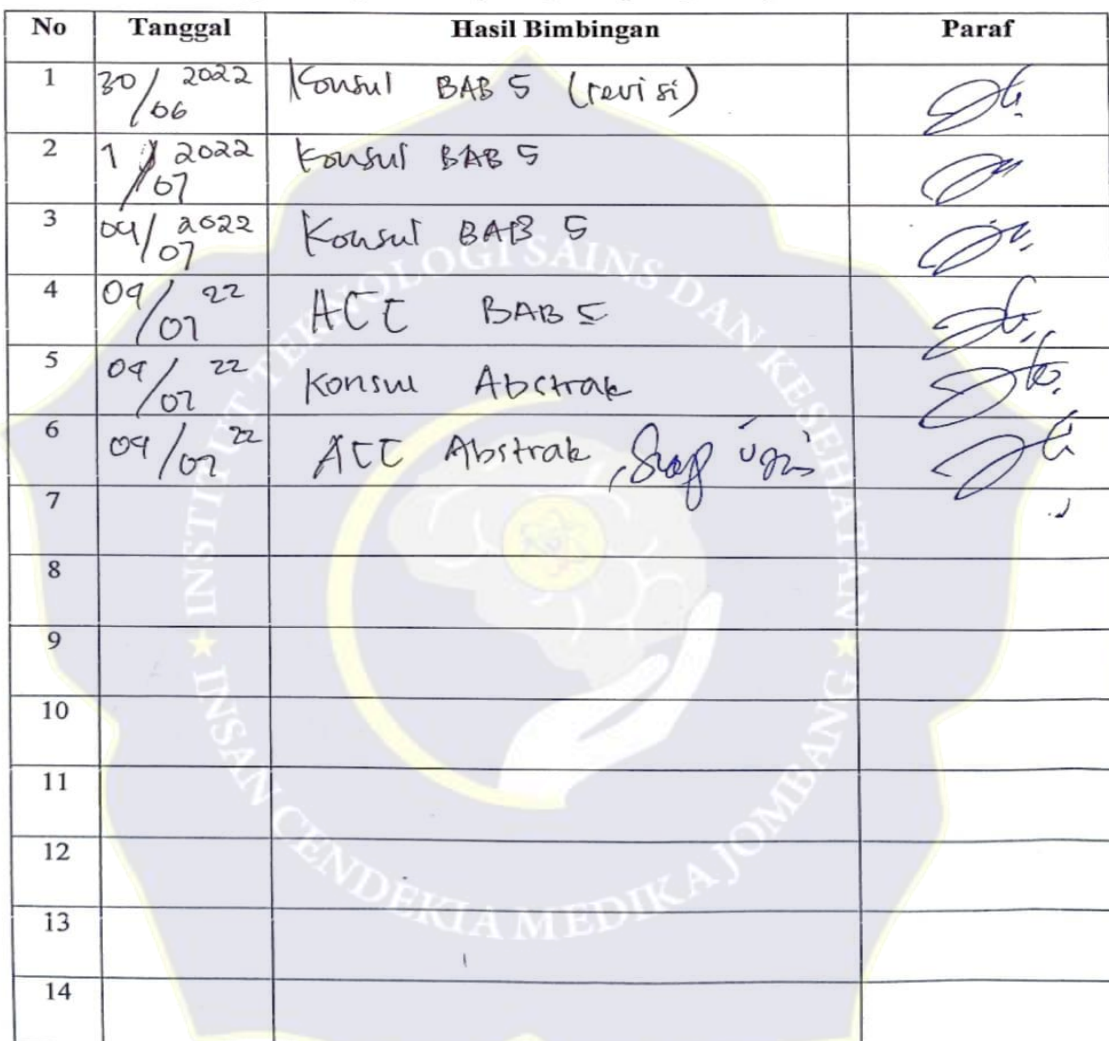 No Tanggal Hasil Bimbingan Paraf
1 30/06 2022 Konsul BAB 5 (revisi)
2 1/07 2022 Konsul BAB 5
3 04/07 2022 Konsul BAB 5
4 09/07 22 ACC BAB 5
5 09/07 22 Konsul Abstrak
6 09/07 22 ACC Abstrak, Siap Ujian
7
8
9
10
11
12
13
14
INSTITUT TEKNOLOGI SAINS DAN KESEHATAN
INSAN CENDEKIA MEDIKA JOMBANG